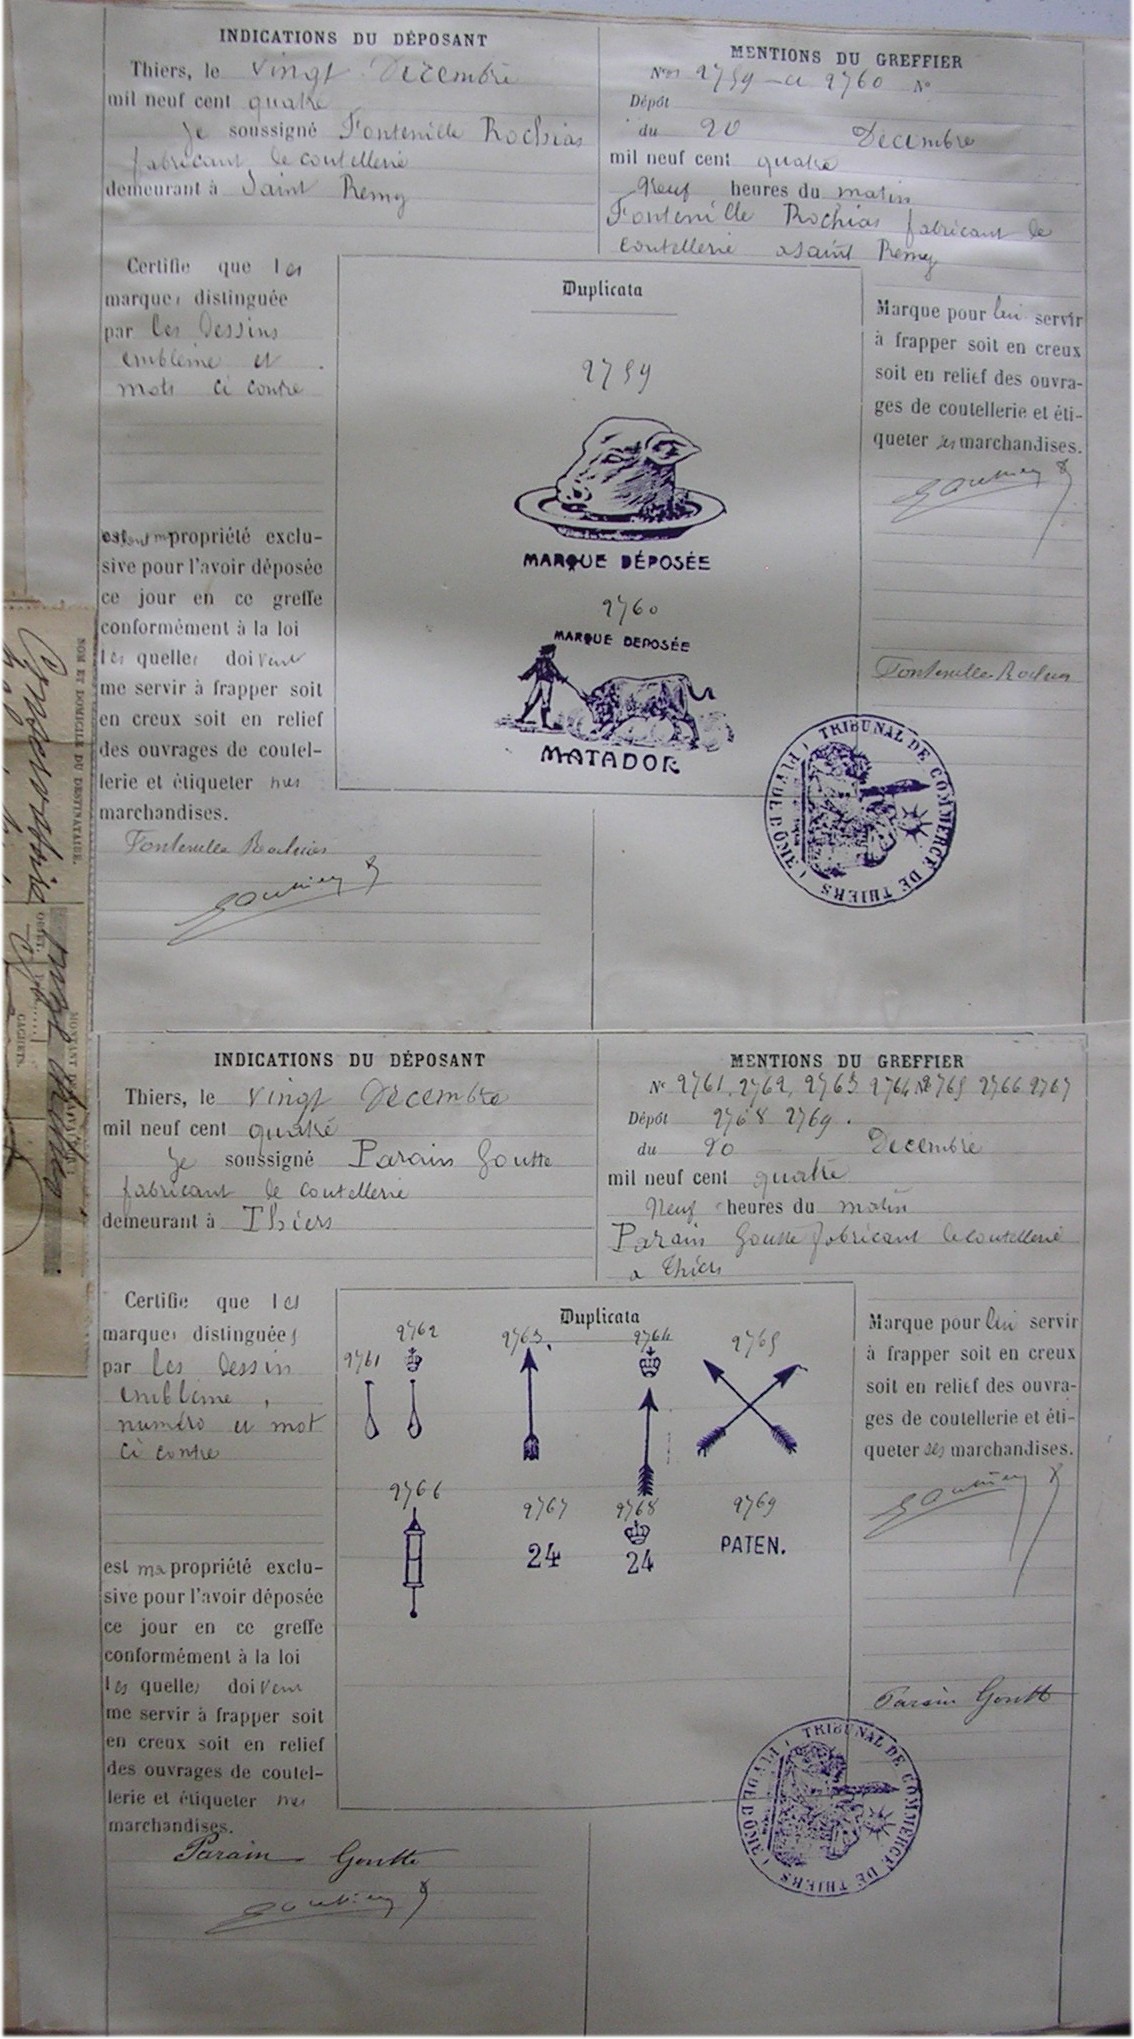 INDICATIONS DU DÉPOSANT
Thiers, le vingt Décembre
mil neuf cent quatre
Je soussigné Fontenille Rochias
fabricant de coutellerie
demeurant à Saint Remy
MENTIONS DU GREFFIER
Nos 2759 a 2760 No
Dépôt
du 20 Decembre
mil neuf cent quatre
Neuf heures du matin
Fontenille Rochias fabricant de
coutellerie a saint Remy
Certifie que les
marques distinguée
par les Dessins
emblème et
mots ci contre
est sont propriété exclu-
sive pour l'avoir déposée
ce jour en ce greffe
conformément à la loi
les quelles doivent
me servir à frapper soit
en creux soit en relief
des ouvrages de coutel-
lerie et étiqueter mes
marchandises.
Fontenille Rochias
Duplicata
2759
MARQUE DÉPOSÉE
2760
MARQUE DEPOSÉE
MATADOR
Marque pour lui servir
à frapper soit en creux
soit en relief des ouvra-
ges de coutellerie et éti-
queter ses marchandises.
Fontenille Rochias
TRIBUNAL DE COMMERCE DE THIERS (PUY DE DOME)
NOM ET DOMICILE DU DESTINATAIRE.
INDICATIONS DU DÉPOSANT
Thiers, le vingt Decembre
mil neuf cent quatre
Je soussigné Parain Goutte
fabricant de coutellerie
demeurant à Thiers
MENTIONS DU GREFFIER
No 2761, 2762, 2763 2764 No 2765 2766 2767
Dépôt 2768 2769.
du 20 Decembre
mil neuf cent quatre
Neuf heures du matin
Parain Goutte fabricant de coutellerie
a Thiers
Certifie que les
marques distinguées
par les Dessin
emblème,
numéro et mot
ci contre
est ma propriété exclu-
sive pour l'avoir déposée
ce jour en ce greffe
conformément à la loi
les quelles doivent
me servir à frapper soit
en creux soit en relief
des ouvrages de coutel-
lerie et étiqueter mes
marchandises.
Parain Goutte
Duplicata
2761 2762 2763 2764 2765
2766 2767 2768 2769
24 24 PATEN.
Marque pour lui servir
à frapper soit en creux
soit en relief des ouvra-
ges de coutellerie et éti-
queter ses marchandises.
Parain Goutte
TRIBUNAL DE COMMERCE DE THIERS (PUY DE DOME)